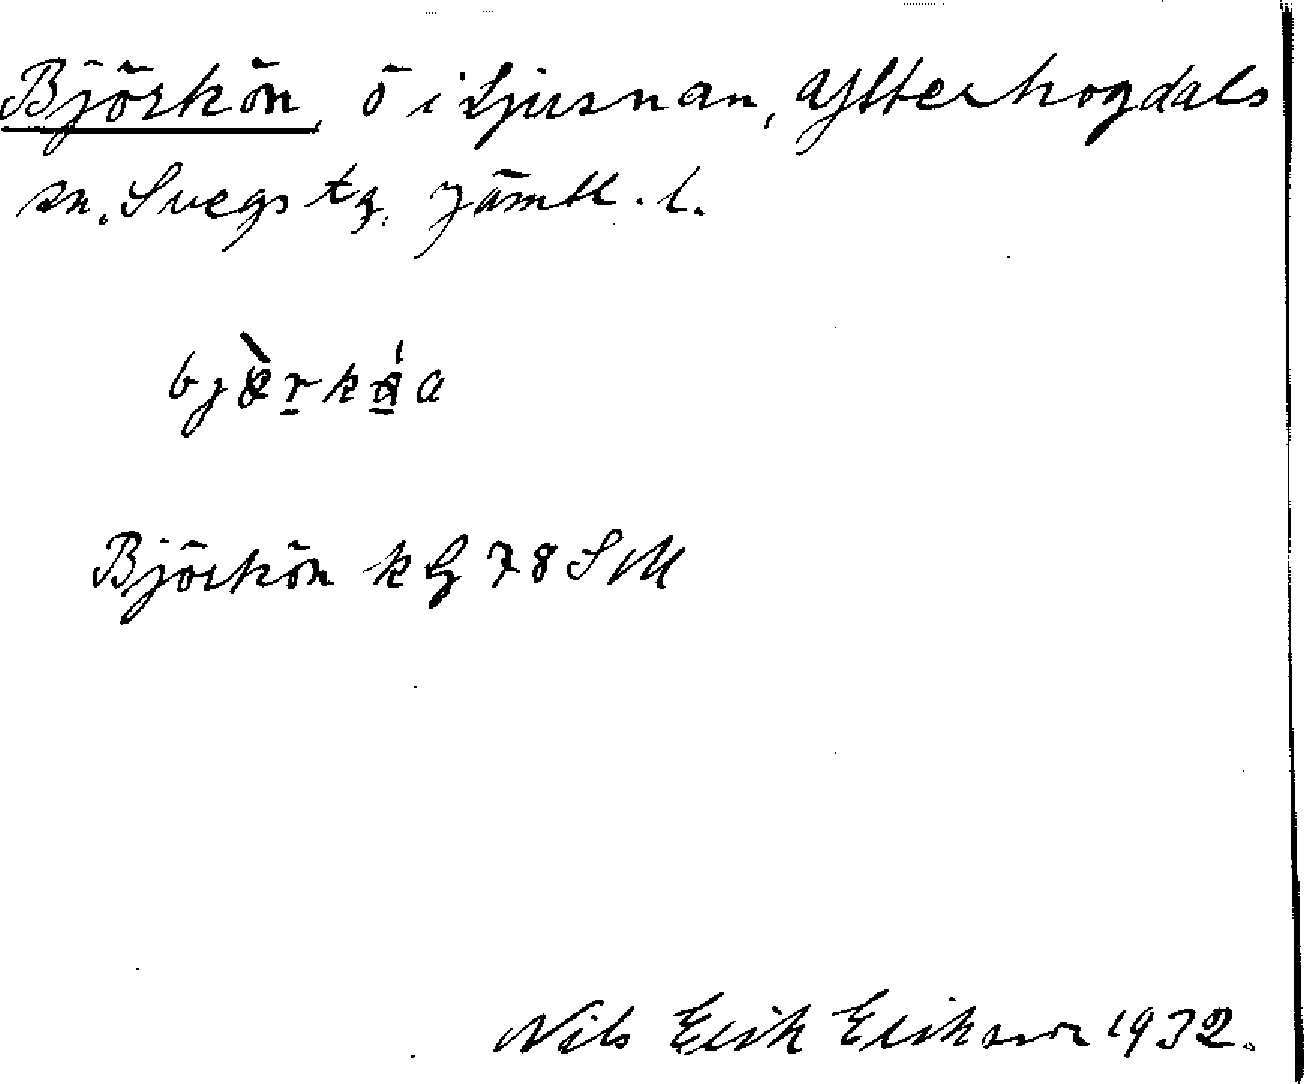 Björkön, ö i Ljusnan, Ytterhogdals
sn. Svegs tg. Jämtl. l.
Björkön kG 78 SM
Nils Erik Erikson 1932.